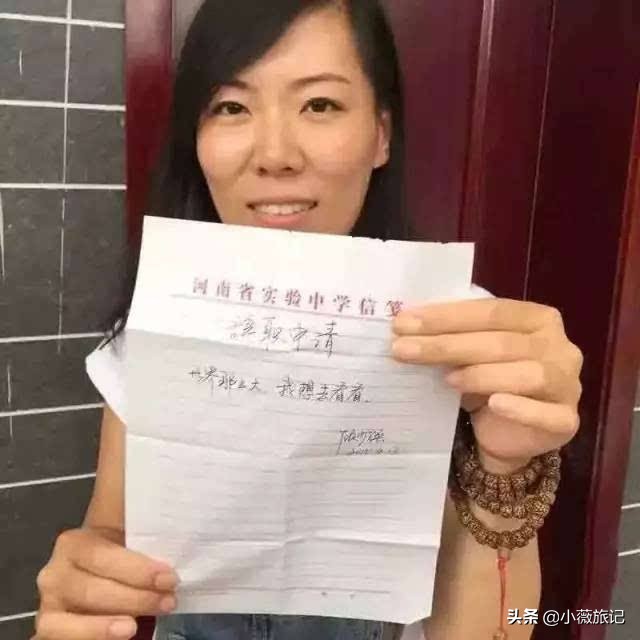 河南省实验中学信笺
辞职申请
世界那么大,我想去看看。
头条 @小薇旅记